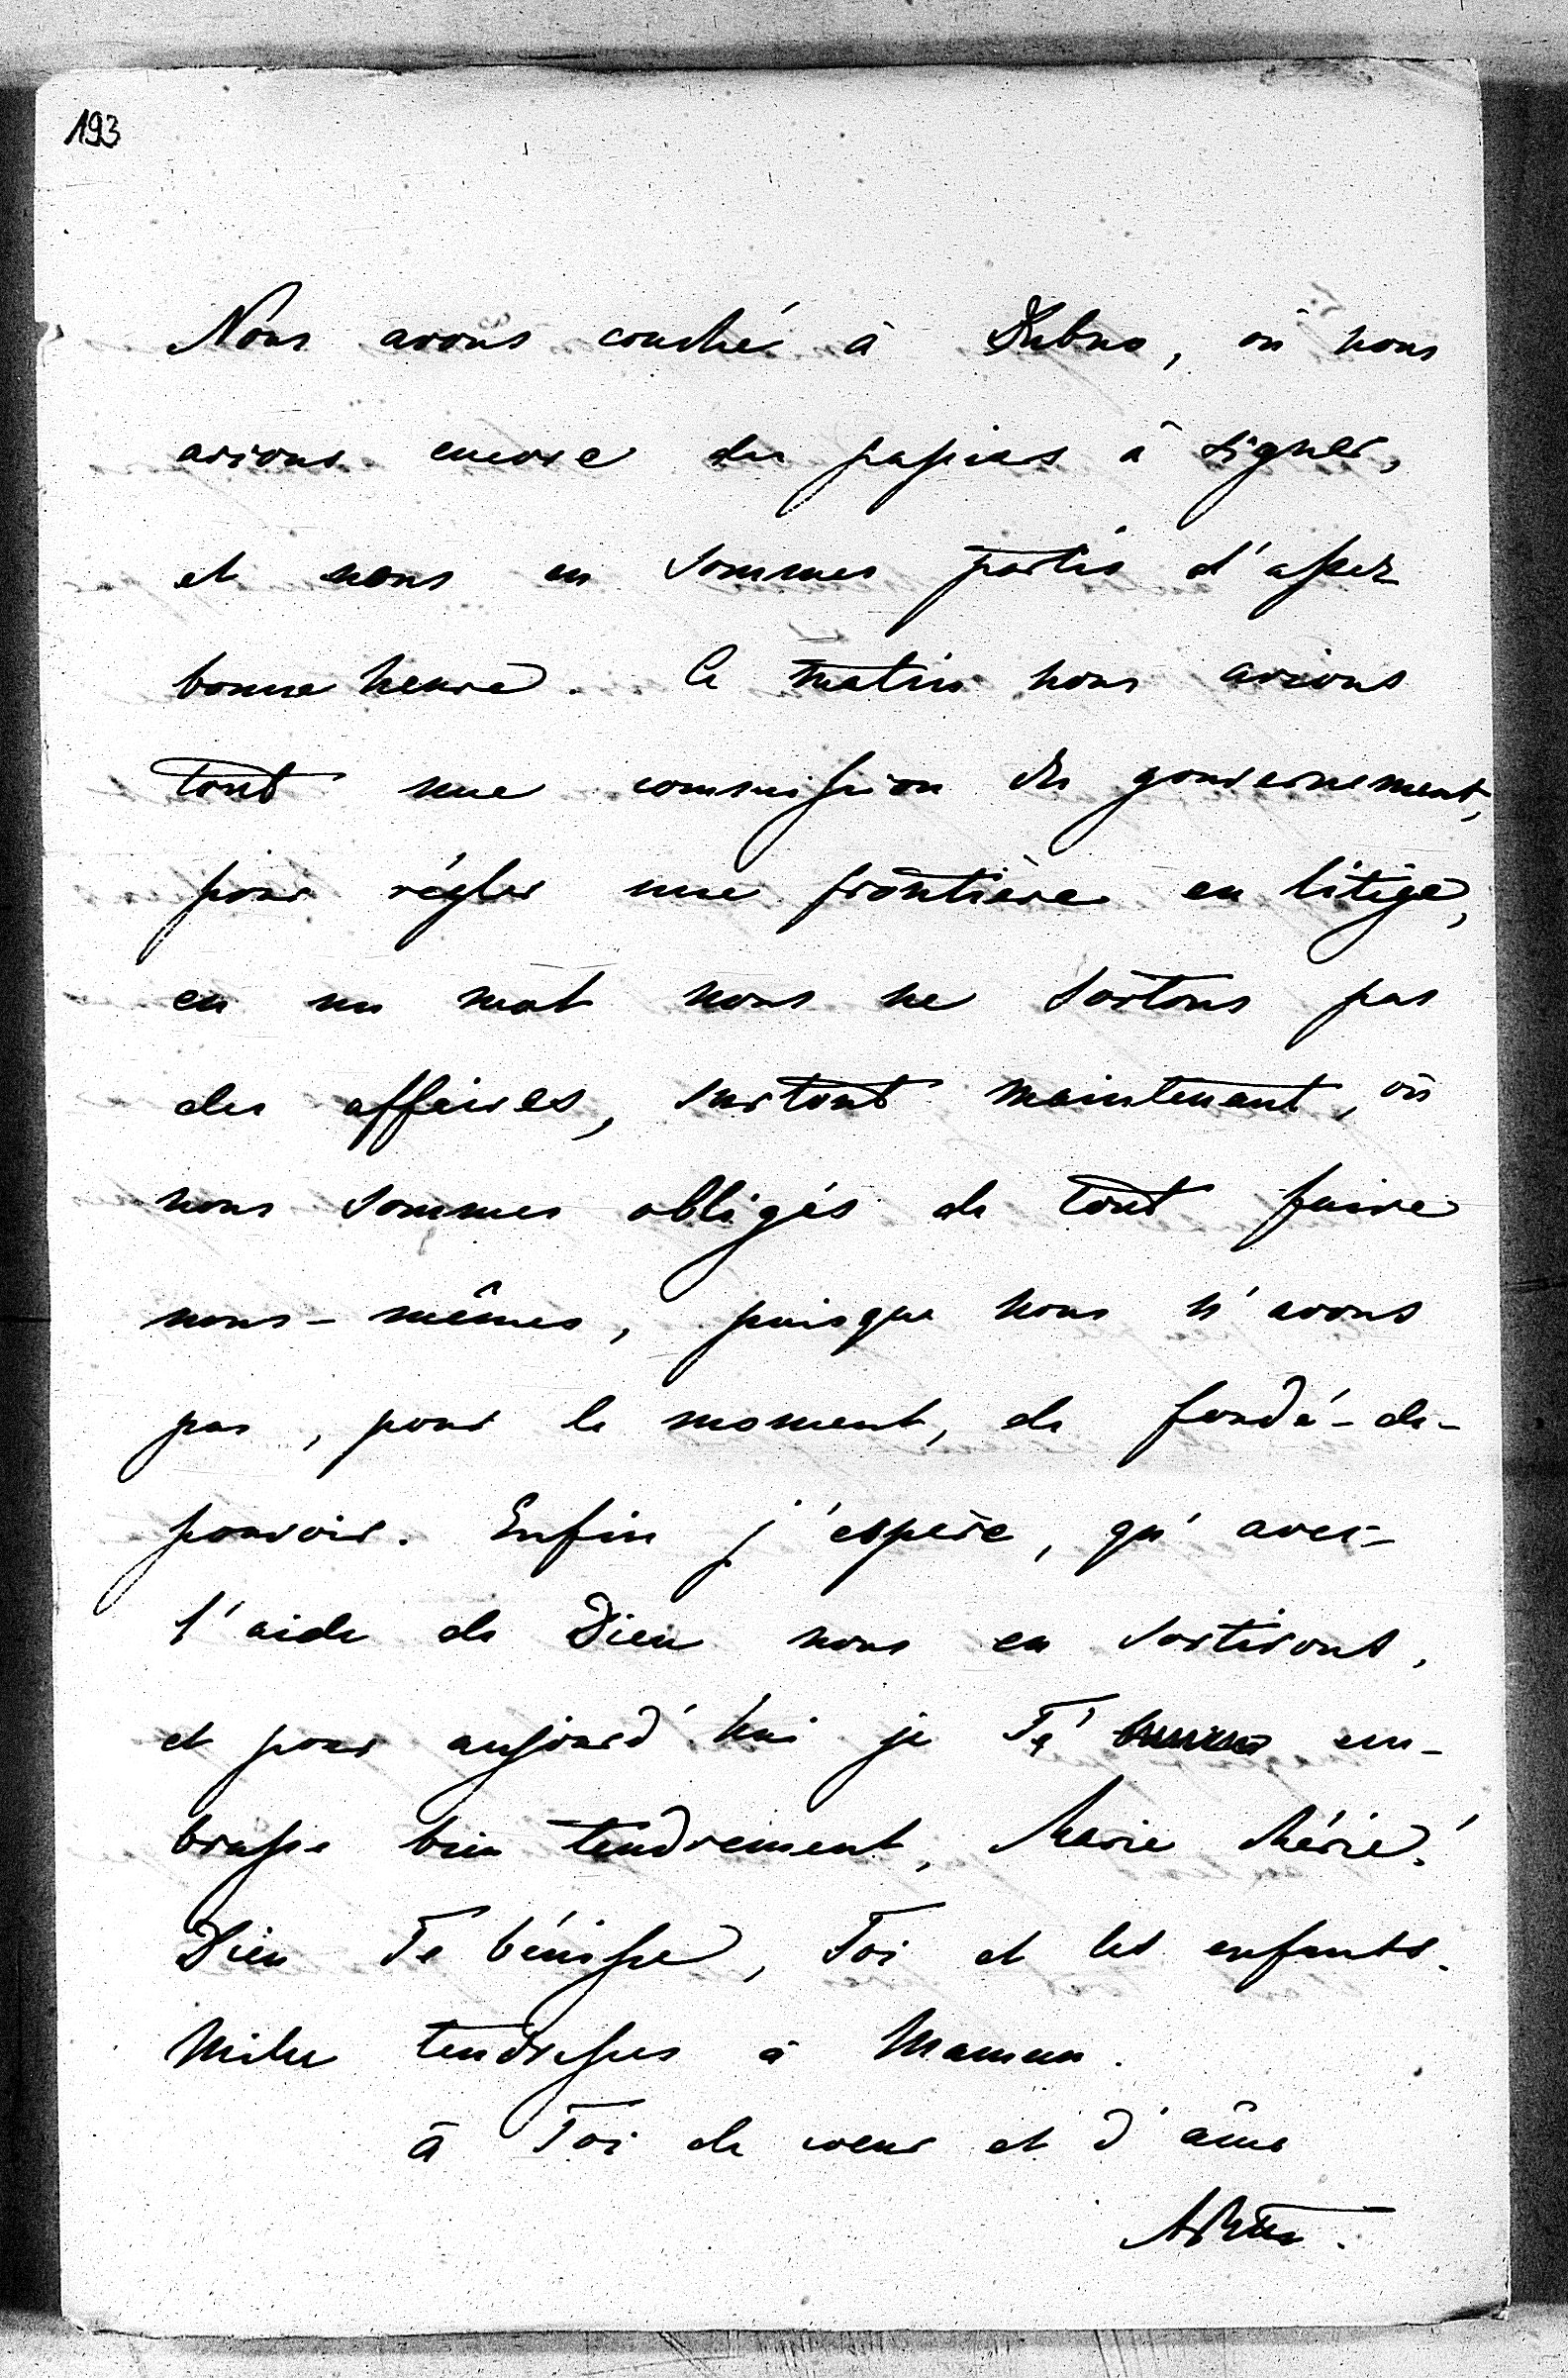 193
Nous avons couché à Dubno, où nous
avions encore des papiers à signer,
et nous en sommes partis d'assez
bonne heure. Ce matin nous avions
tout une commission du gouvernement,
pour régler une frontière en litige,
en un mot nous ne sortons pas
des affaires, surtout maintenant, où
nous sommes obligés de tout faire
nous-mêmes, puisque nous n'avons
pas, pour le moment, de fondé-de-
pouvoir. Enfin j'espère, qu'avec
l'aide de Dieu nous en sortirons,
et pour aujourd'hui je T' em-
brasse bien tendrement, Marie chérie!
Dieu Te bénisse, Toi et les enfants.
Milles tendresses à Maman.
à Toi de coeur et d'âme